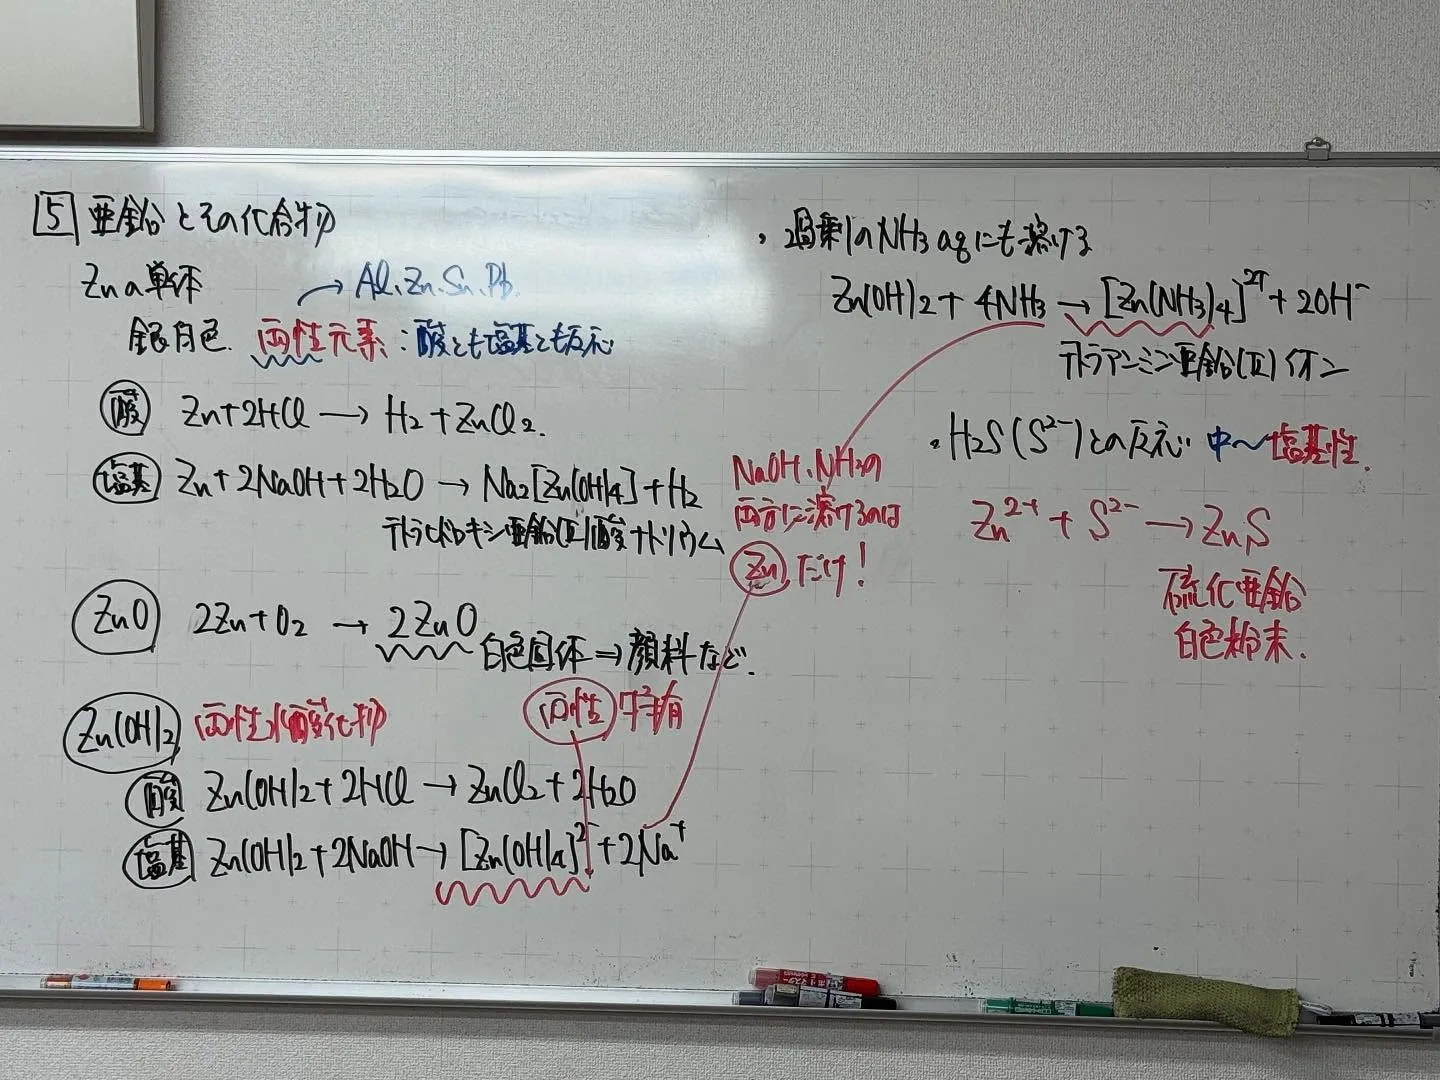 5 亜鉛とその化合物
Znの単体
→ Al、Zn、Sn、Pb
銀白色 両性元素：酸とも塩基とも反応
酸 Zn+2HCl → H2+ZnCl2.
塩基 Zn+2NaOH+2H2O → Na2[Zn(OH)4]+H2
テトラヒドロキシド亜鉛(II)酸ナトリウム
ZnO 2Zn+O2 → 2ZnO
白色固体⇒顔料など.
Zn(OH)2 両性水酸化物
両性 特有
酸 Zn(OH)2+2HCl → ZnCl2+2H2O
塩基 Zn(OH)2+2NaOH → [Zn(OH)4]2-+2Na+
NaOH、NH3の
両方に溶けるのは
Zn だけ！
・過剰のNH3aqにも溶ける
Zn(OH)2+4NH3 → [Zn(NH3)4]2++2OH-
テトラアンミン亜鉛(II)イオン
・H2S(S2-)との反応 中〜塩基性.
Zn2++S2- → ZnS
硫化亜鉛
白色粉末.